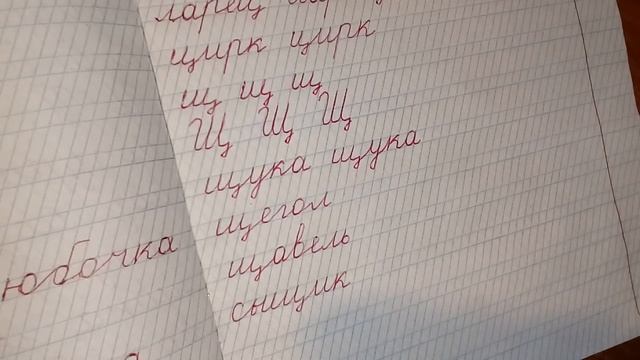 юбочка
ларец
цирк цирк
щ щ щ
Щ Щ Щ
щука щука
щегол
щавель
сыщик